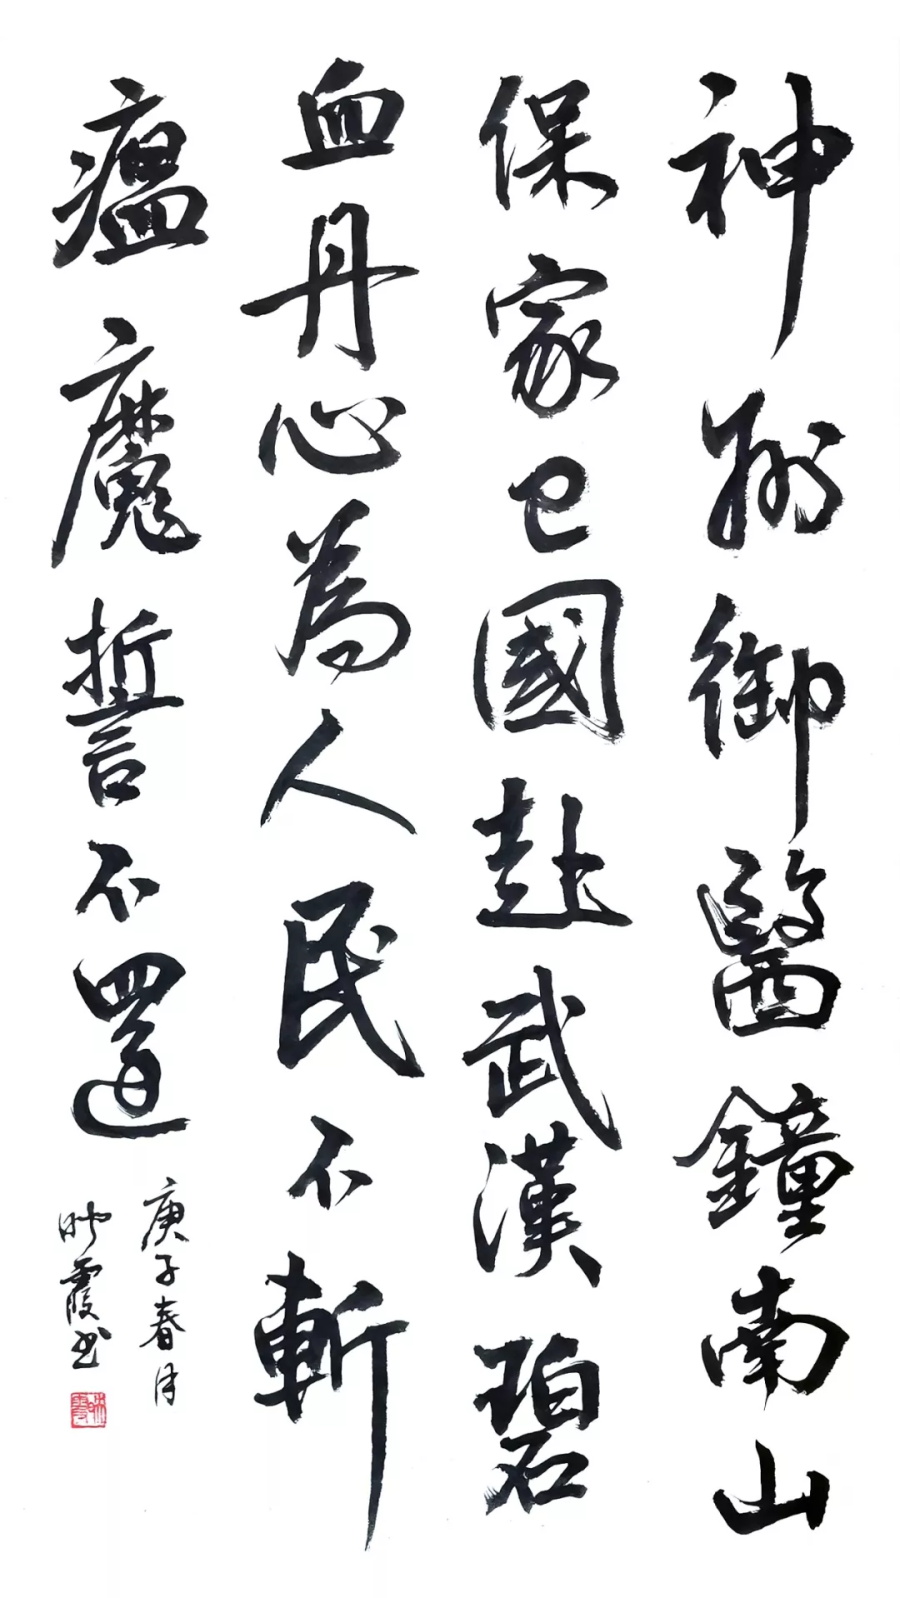 神州御醫鐘南山
保家卫國赴武漢碧
血丹心為人民不斬
瘟魔誓不還
庚子春月
映霞书